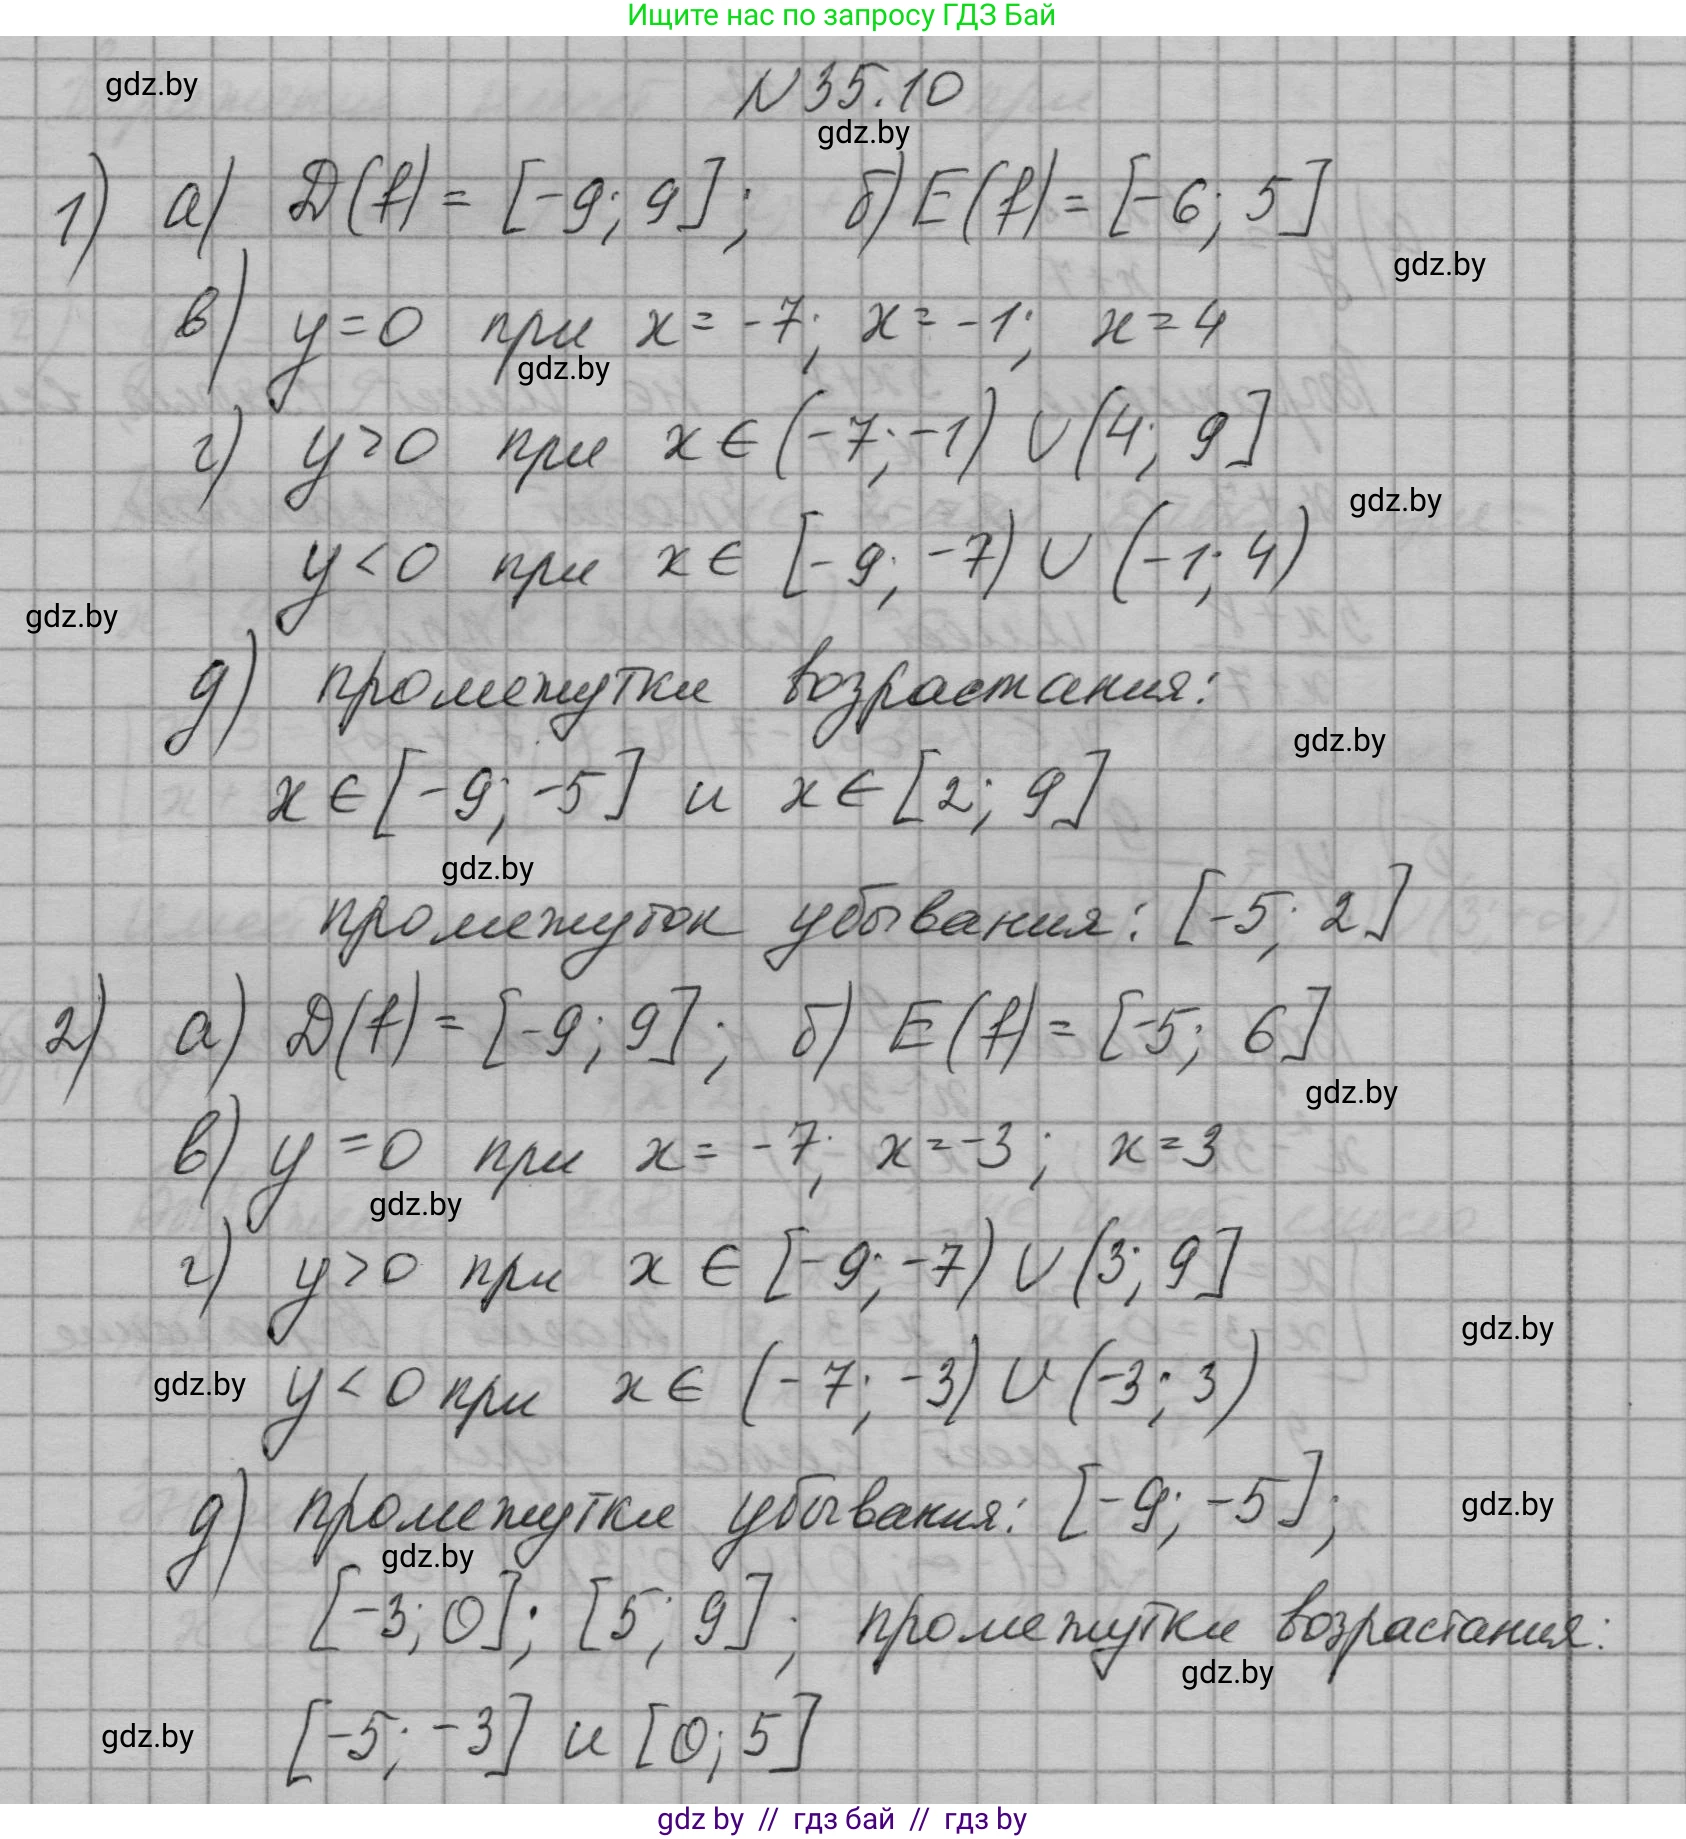 Ищите нас по запросу ГДЗ Бай
gdz.by
N 35.10
gdz.by
1) а) D(f) = [-9; 9]; б) E(f) = [-6; 5]
gdz.by
в) y = 0 при x = -7; x = -1; x = 4
gdz.by
г) y > 0 при x ∈ (-7; -1) ∪ (4; 9]
gdz.by
y < 0 при x ∈ [-9; -7) ∪ (-1; 4)
gdz.by
д) промежутки возрастания:
gdz.by
x ∈ [-9; -5] и x ∈ [2; 9]
gdz.by
промежуток убывания: [-5; 2]
2) а) D(f) = [-9; 9]; б) E(f) = [-5; 6]
gdz.by
в) y = 0 при x = -7; x = -3; x = 3
gdz.by
г) y > 0 при x ∈ [-9; -7) ∪ (3; 9]
gdz.by
gdz.by
y < 0 при x ∈ (-7; -3) ∪ (-3; 3)
д) промежутки убывания: [-9; -5];
gdz.by
gdz.by
[-3; 0]; [5; 9]; промежутки возрастания:
gdz.by
gdz.by
[-5; -3] и [0; 5]
gdz by // гдз бай // гдз by